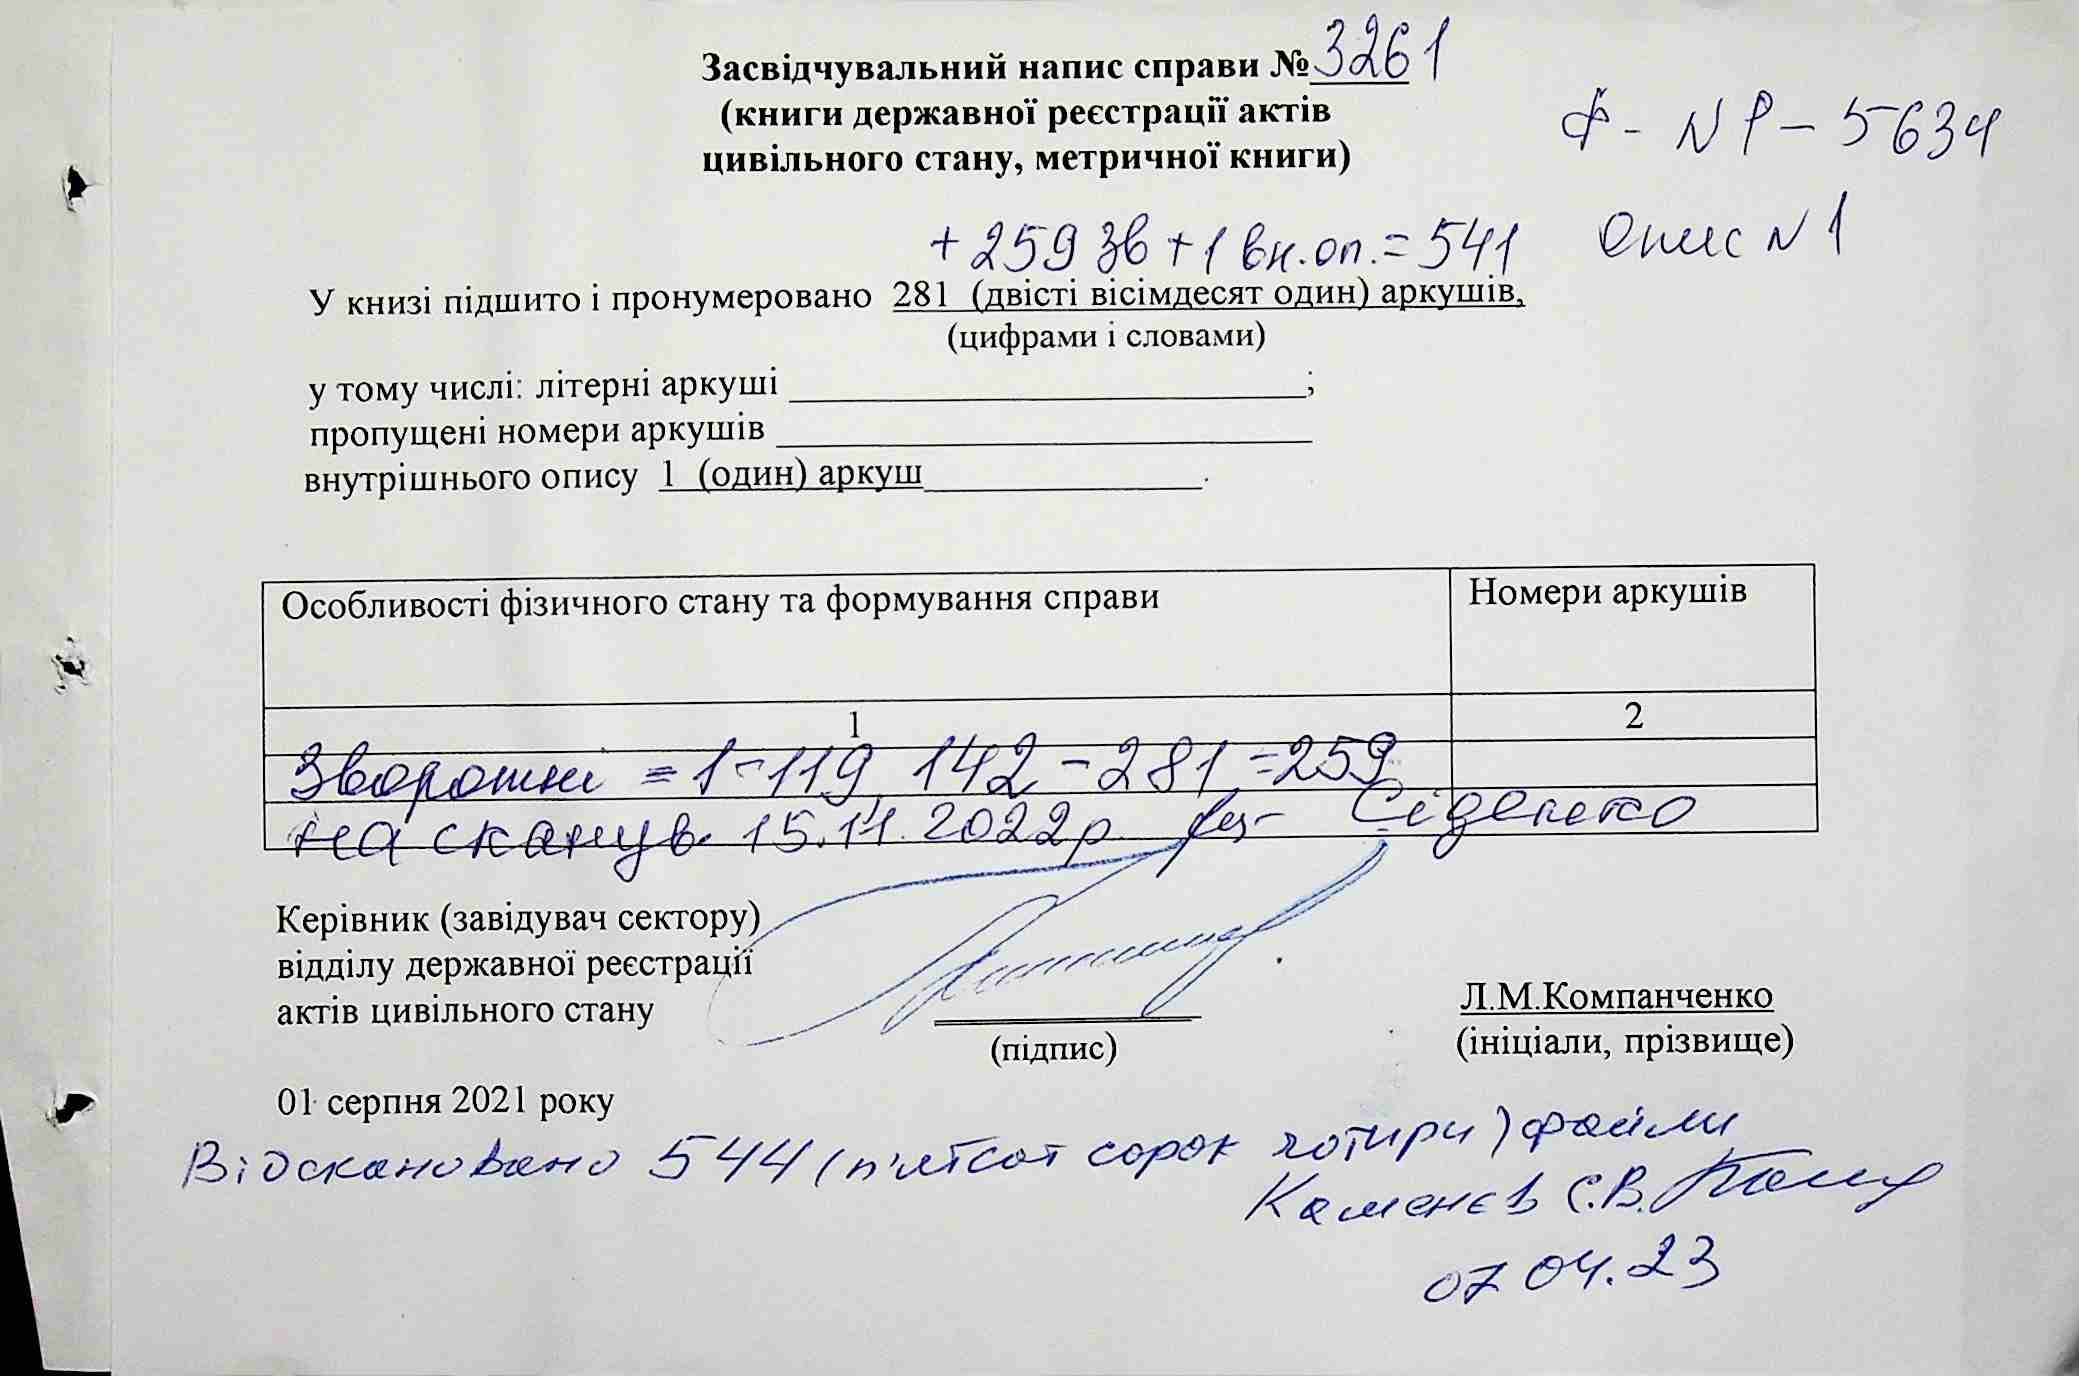 Засвідчувальний напис справи № 3261
(книги державної реєстрації актів
цивільного стану, метричної книги)
Ф - N Р - 5634
Опис N 1
+ 259 зв + 1 вн. оп. = 541
У книзі підшито і пронумеровано 281 (двісті вісімдесят один) аркушів,
(цифрами і словами)
у тому числі: літерні аркуші ;
пропущені номери аркушів
внутрішнього опису 1 (один) аркуш .
Особливості фізичного стану та формування справи Номери аркушів
1 2
Зворотні = 1-119, 142-281 = 259
На сканув. 15.11.2022р. Сіденко
Керівник (завідувач сектору)
відділу державної реєстрації
актів цивільного стану
Л.М.Компанченко
(підпис) (ініціали, прізвище)
01 серпня 2021 року
Відскановано 544 (п'ятсот сорок чотири) файли
Каменєв С.В.
07.04.23